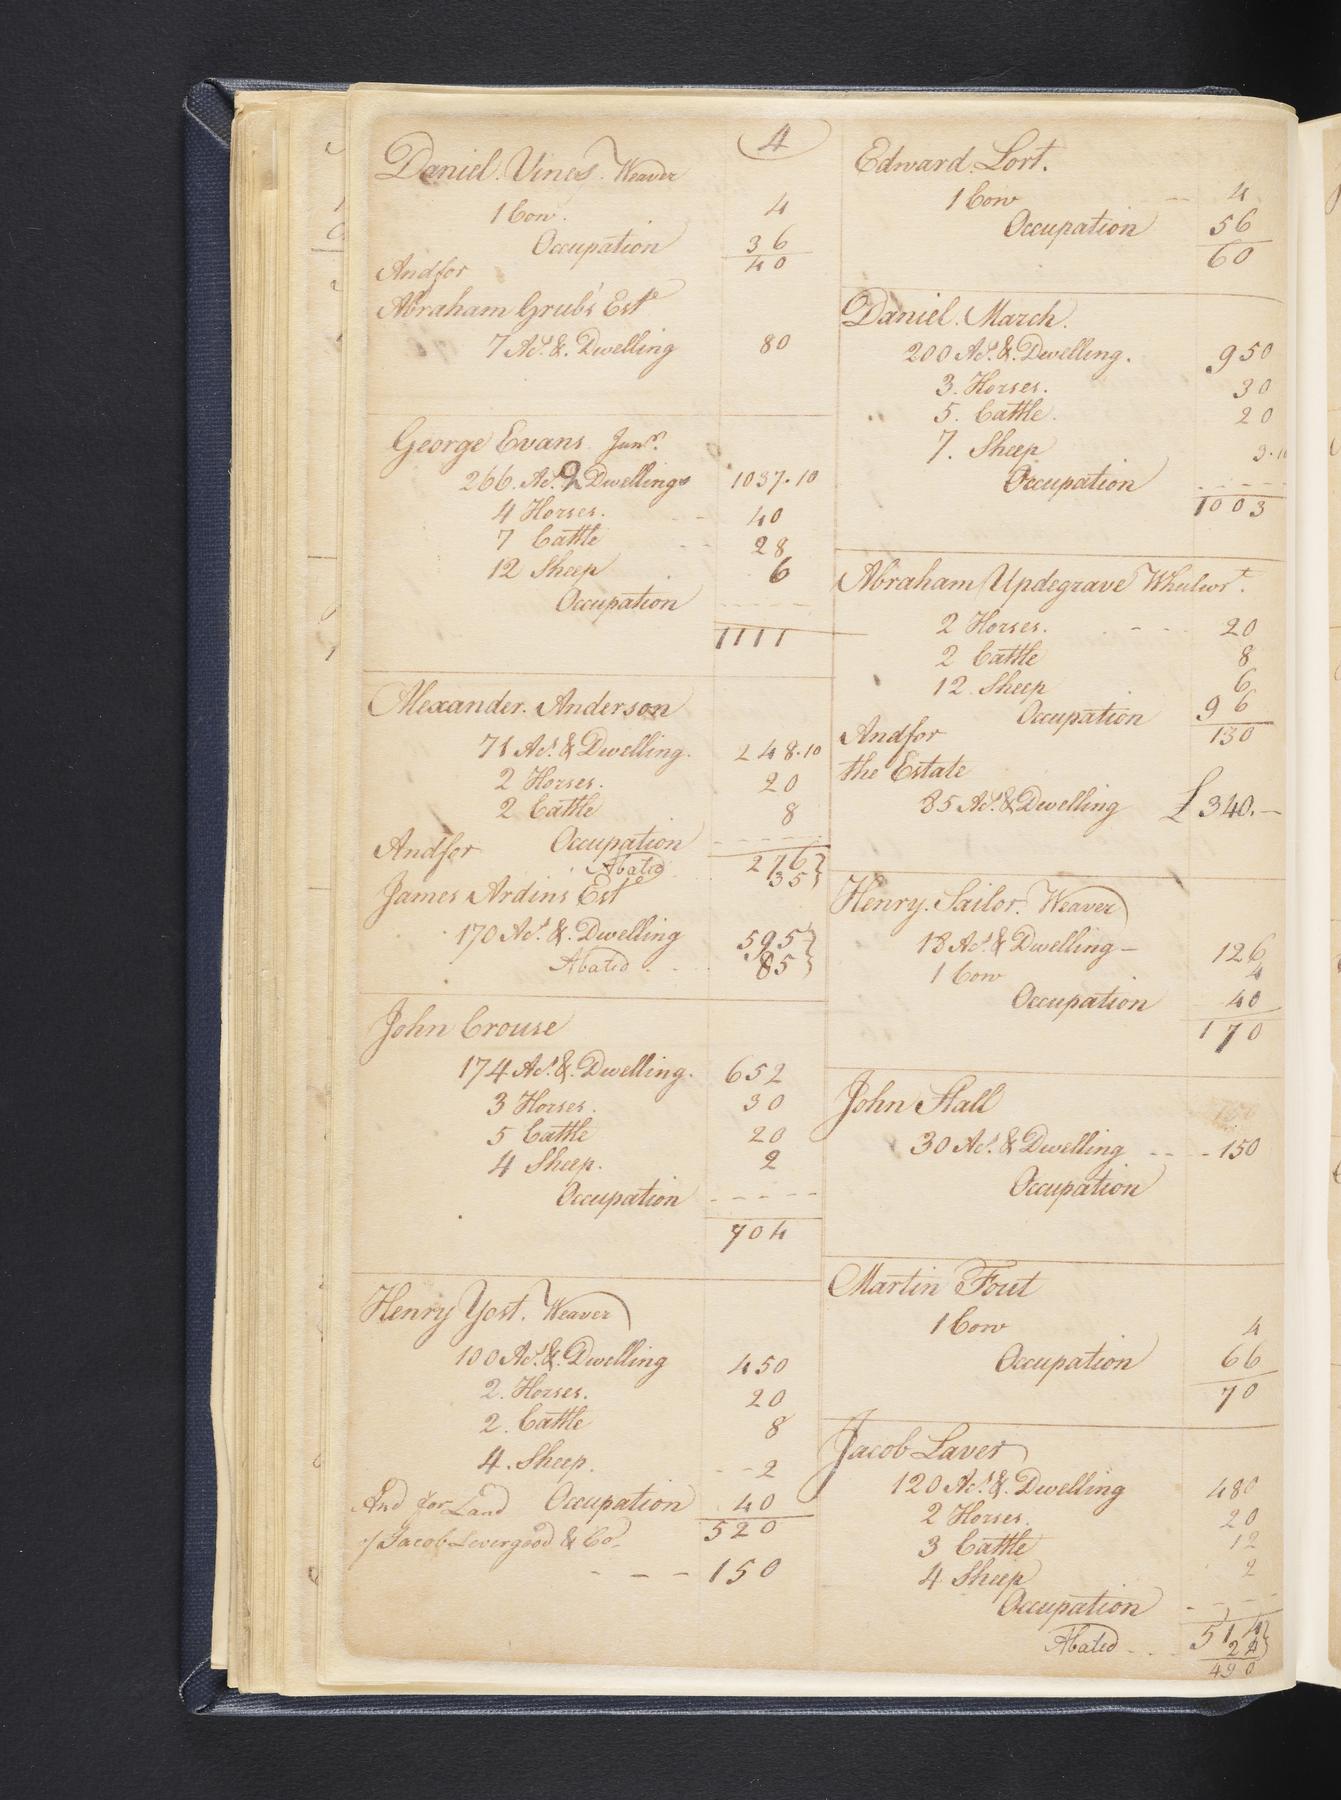 4
Daniel. Vines. Weaver
1 Cow. 4
Occupation 36
40
Andfor
Abraham Grub's Este
7 Acs. &. Dwelling 80
George Evans. Junr.
266. Acs. 2 Dwellings 1037.10
4 Horses. 40
7 Cattle 28
12 Sheep 6
Occupation
1111
Alexander. Anderson
71 Acs. & Dwelling. 248.10
2 Horses. 20
2 Cattle 8
Andfor Occupation
276
Abated 35
James Ardins Este
170 Acs. &. Dwelling 595
Abated 85
John Crouse
174 Acs. &. Dwelling. 652
3 Horses. 30
5 Cattle 20
4 Sheep. 2
Occupation
704
Henry Yost. Weaver
100 Acs. &. Dwelling 450
2. Horses. 20
2. Cattle 8
4. Sheep. 2
And for Land Occupation 40
of Jacob Levergood & Co. 520
150
Edward. Lort.
1 Cow 4
Occupation 56
60
Daniel. March.
200 Acs. &. Dwelling. 950
3. Horses. 30
5. Cattle. 20
7. Sheep 3.10
Occupation
1003
Abraham Updegrave Wheelwrt.
2 Horses. 20
2 Cattle 8
12. Sheep 6
Occupation 96
Andfor 130
the Estate
85 Acs. & Dwelling £ 340.—
Henry. Sailor. Weaver
18 Acs. & Dwelling — 126
1 Cow 4
Occupation 40
170
John Stall
30 Acs. & Dwelling 150
Occupation
Martin Fout
1 Cow 4
Occupation 66
70
Jacob Laver
120 Acs. &. Dwelling 480
2 Horses. 20
3 Cattle 12
4 Sheep 2
Occupation
514
Abated 24
490